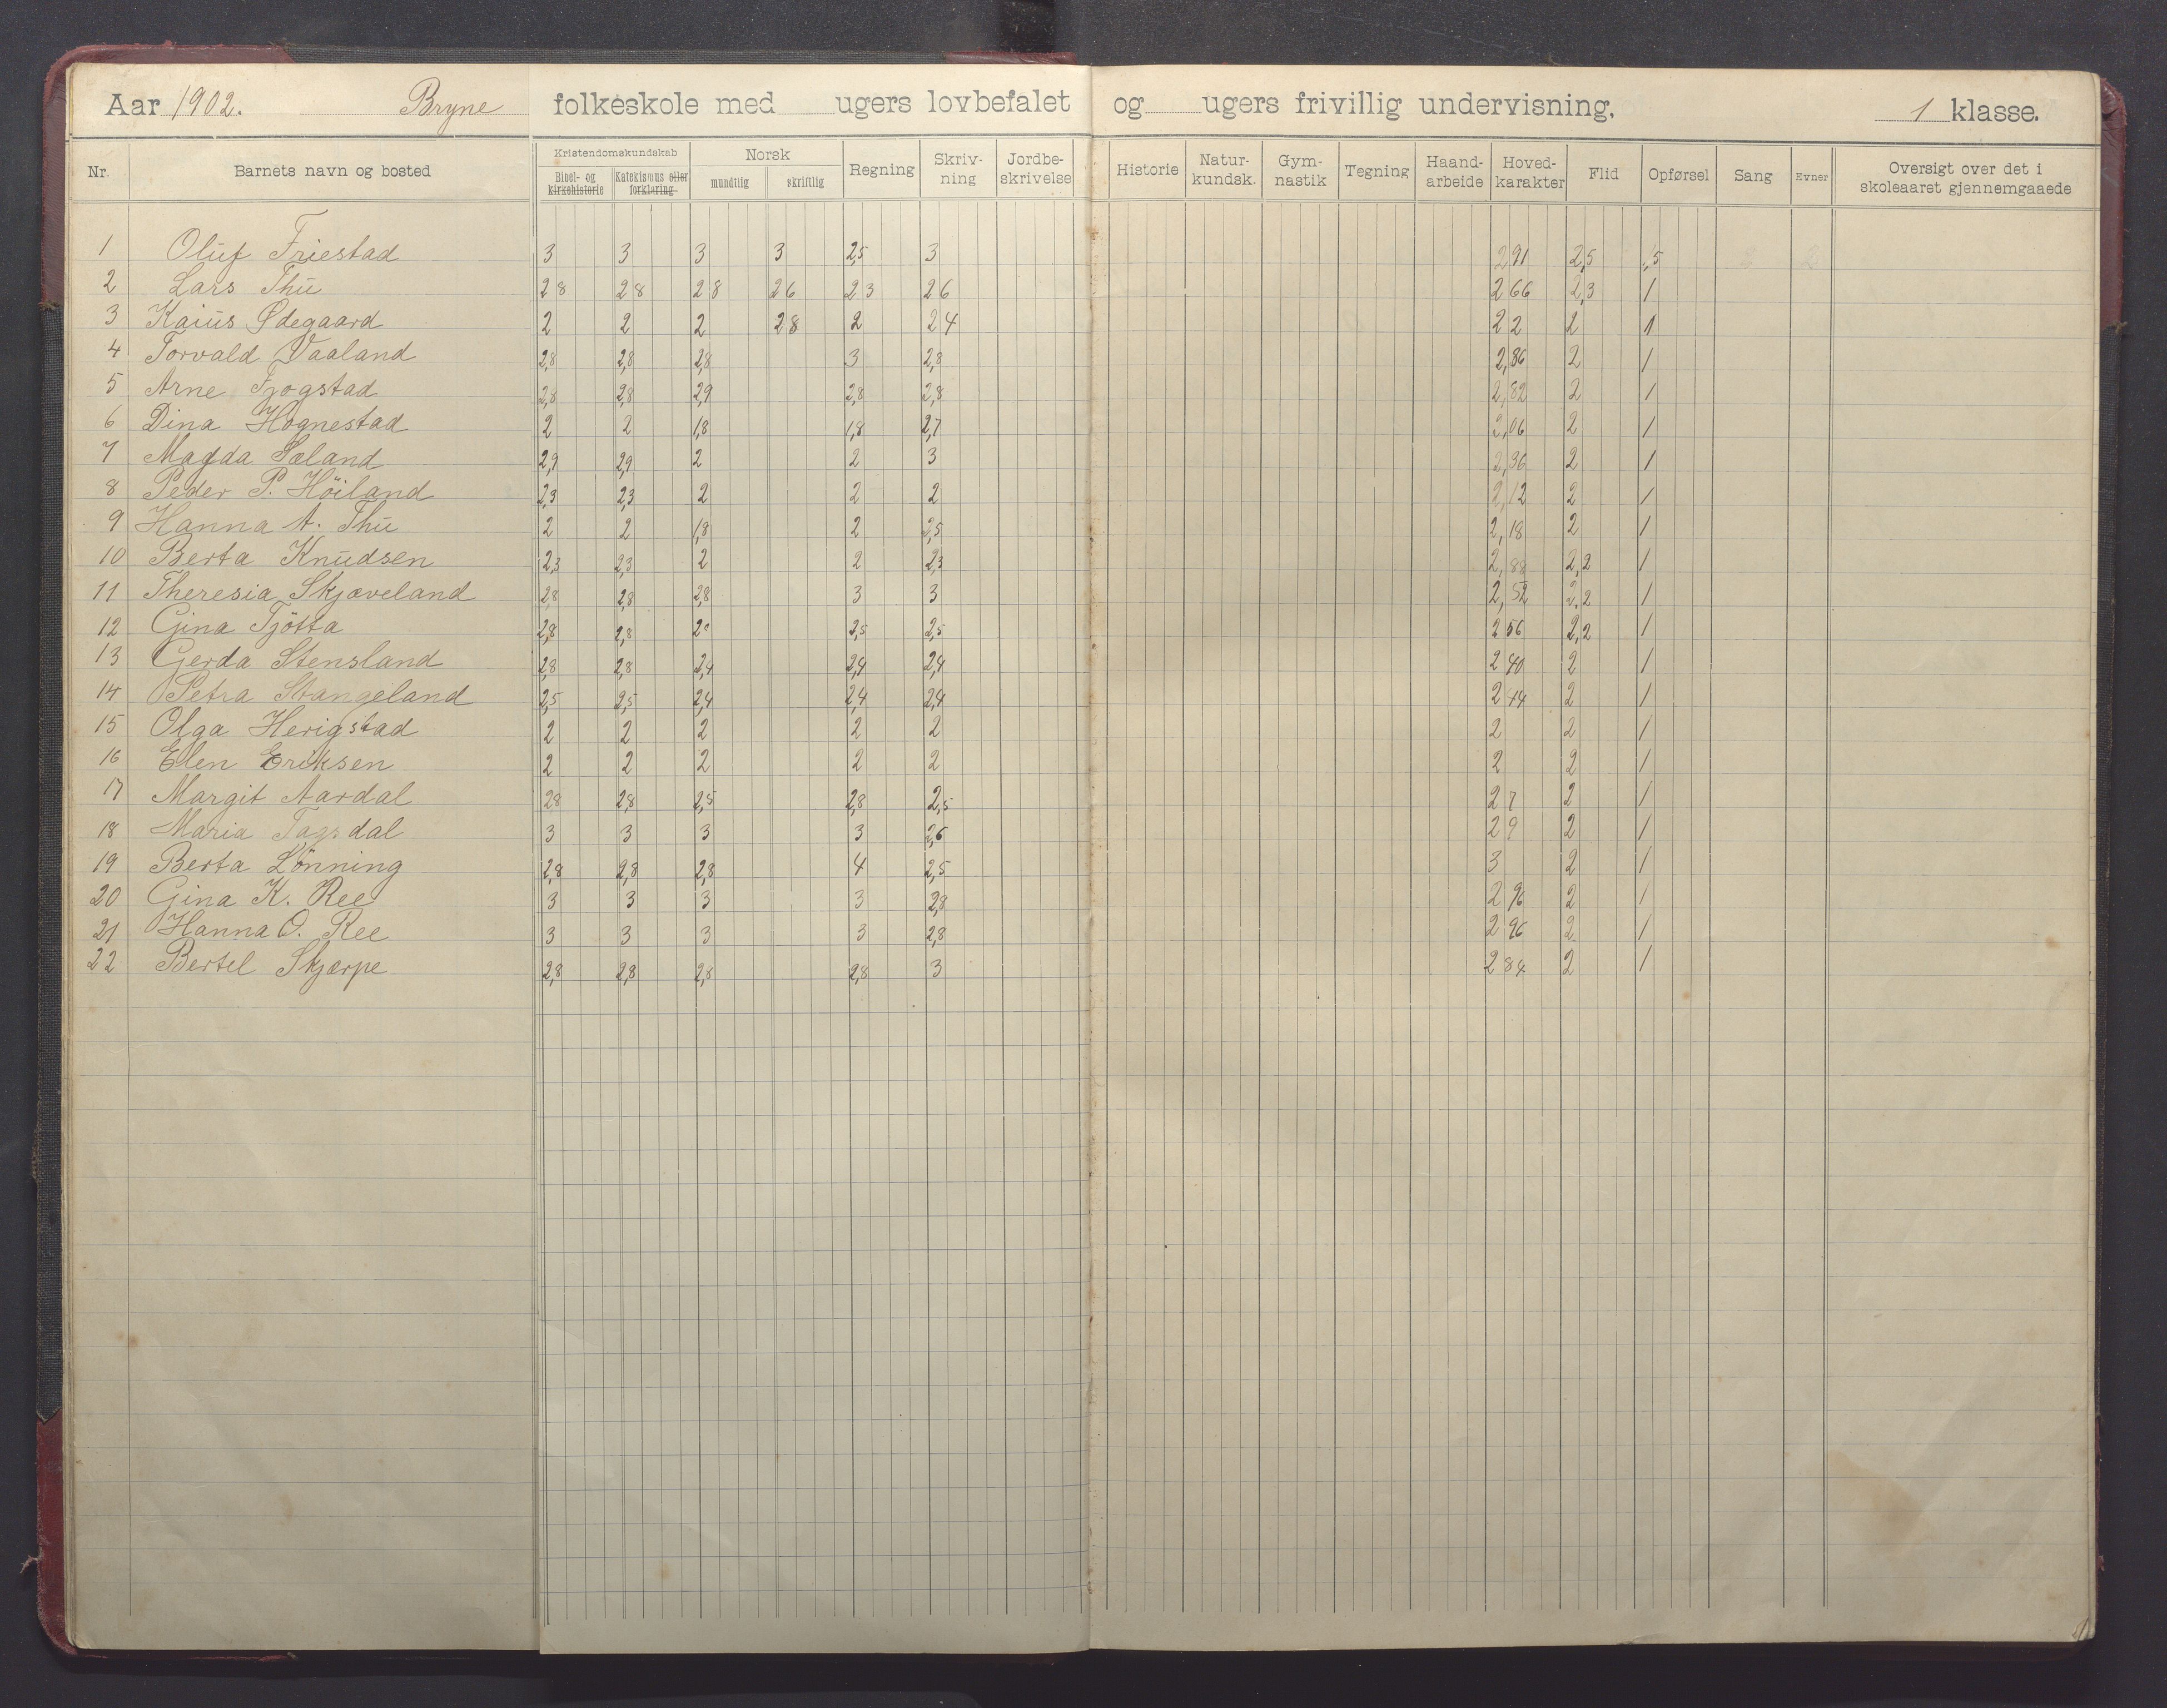 Aar 1902. Bryne folkeskole med ugers lovbefalet og ugers frivillig undervisning. 1 klasse.
Nr. Barnets navn og bosted Kristendomskundskab Bibel- og kirkehistorie Katekismus eller forklaring Norsk mundtlig skriftlig Regning Skriv-ning Jordbe-skrivelse Historie Natur-kundsk. Gym-nastik Tegning Haand-arbeide Hoved-karakter Flid Opførsel Sang Evner Oversigt over det i skoleaaret gjennemgaaede
1 Oluf Friestad 3 3 3 3 2,5 3 291 2,5 1,5
2 Lars Thu 28 28 28 26 23 26 266 2,3 1
3 Kaius Ødegaard 2 2 2 28 2 24 22 2 1
4 Torvald Vaaland 2,8 2,8 2,8 3 2,8 2,86 2 1
5 Arne Fjogstad 2,8 2,8 2,9 2,8 2,8 2,82 2 1
6 Dina Hognestad 2 2 1,8 1,8 2,7 2,06 2 1
7 Magda Sæland 2,9 2,9 2 2 3 2,36 2 1
8 Peder P. Höiland 2,3 2,3 2 2 2 2,12 2 1
9 Hanna A. Thu 2 2 1,8 2 2,5 2,18 2 1
10 Berta Knudsen 2,3 2,3 2 2 2,3 2,88 2,2 1
11 Theresia Skjæveland 2,8 2,8 2,8 3 3 2,52 2,2 1
12 Gina Tjötta 2,8 2,8 2,5 2,5 256 2,2 1
13 Gerda Stensland 2,8 2,8 2,4 2,4 2,4 240 2 1
14 Petra Stangeland 2,5 2,5 2,4 2,4 2,4 244 2 1
15 Olga Herigstad 2 2 2 2 2 2 2 1
16 Elen Eriksen 2 2 2 2 2 2 2 1
17 Margit Aardal 28 2,8 2,5 2,8 2,5 27 2 1
18 Maria 3 3 3 3 2,6 29 2 1
19 Berta Lönning 2,8 2,8 2,8 4 2,5 3 2 1
20 Gina K. Ree 3 3 3 3 2,8 296 2 1
21 Hanna O. Ree 3 3 3 3 2,8 296 2 1
22 Bertel Skjærpe 2,8 2,8 2,8 2,8 3 284 2 1